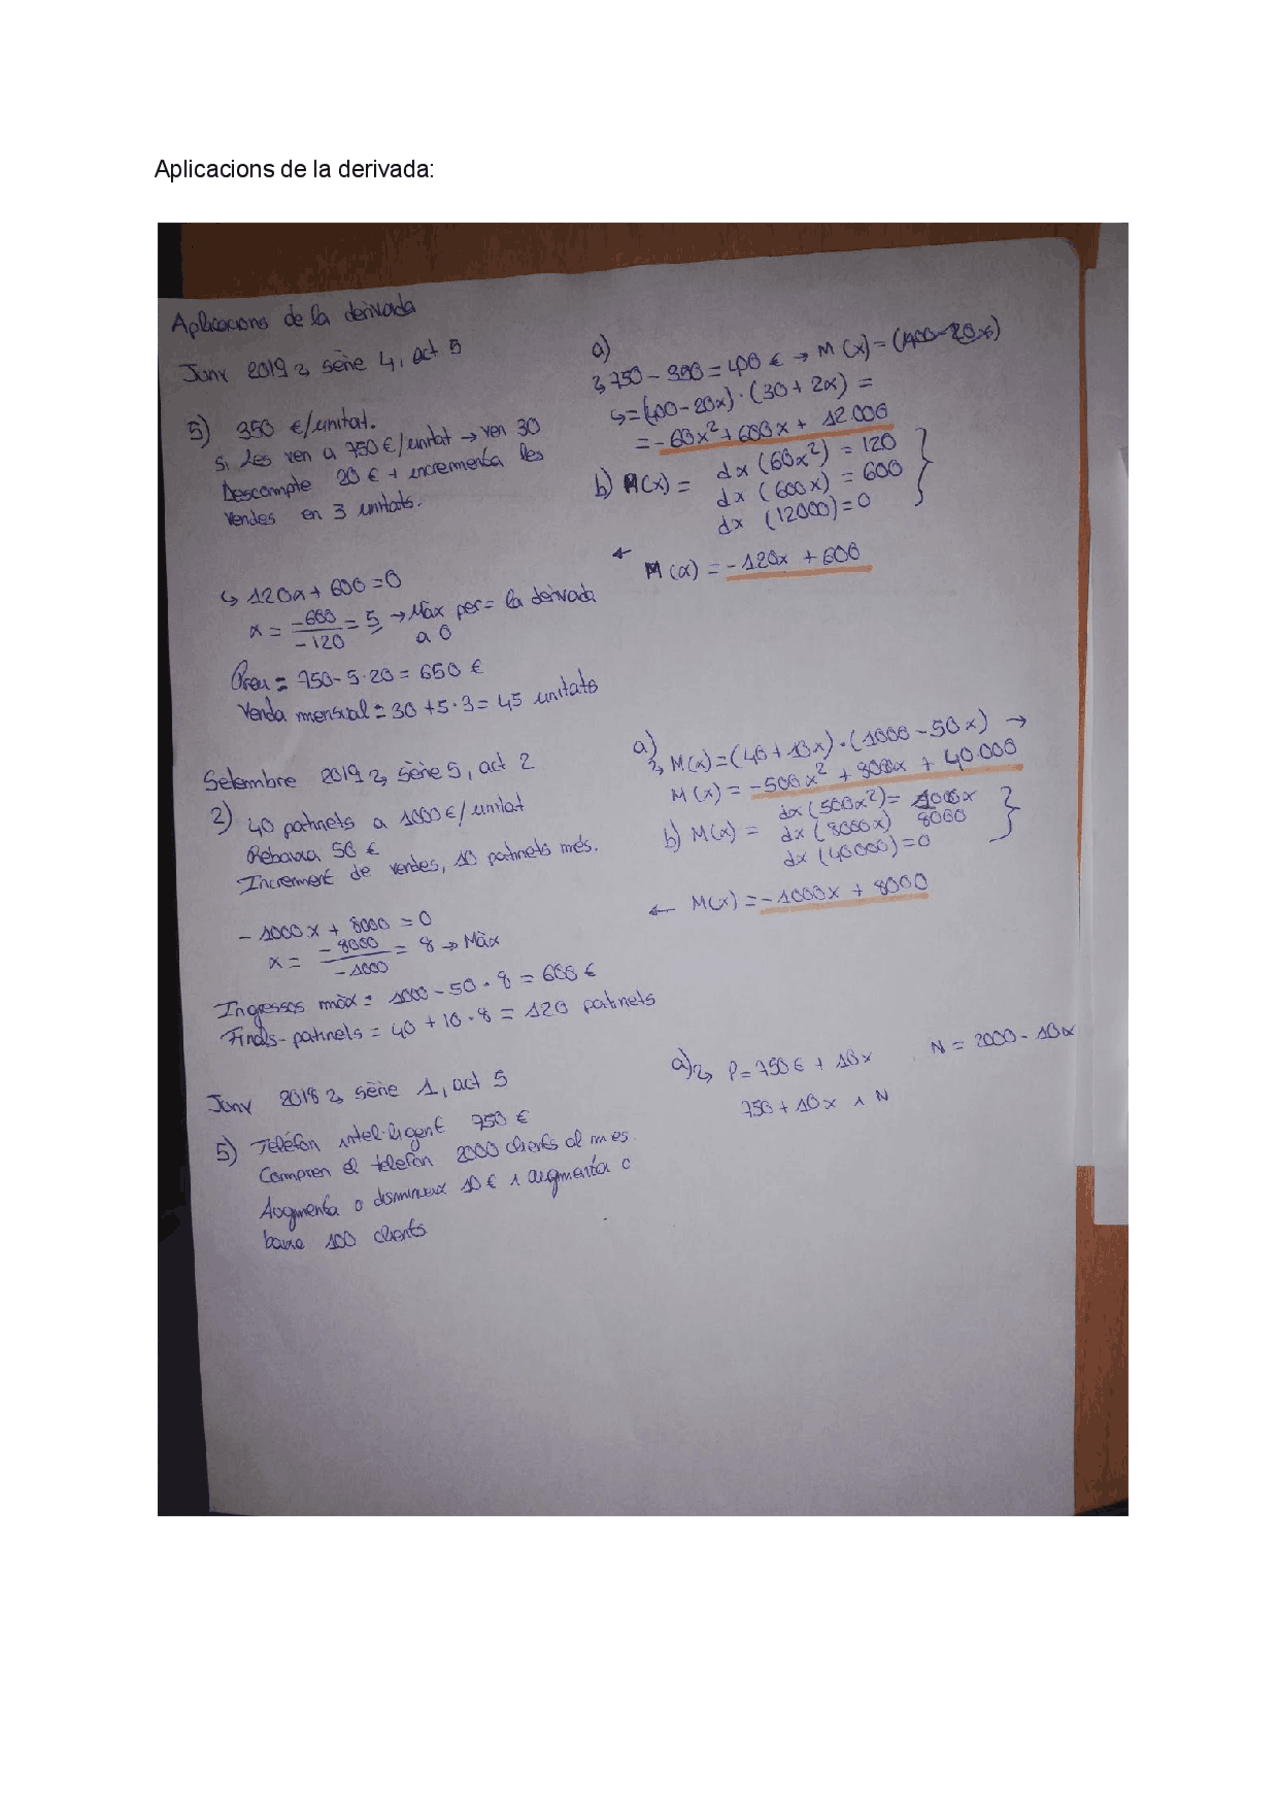 Aplicacions de la derivada:
Aplicacions de la derivada
Juny 2019 → sèrie 4, act 5
5) 350 €/unitat.
Si les ven a 750 €/unitat → ven 30
Descompte 20 € + incrementa les
vendes en 3 unitats.
a)
↳ 750 - 350 = 400 € → M(x) = (400-20x)
↳ = (400-20x)·(30+2x) =
= -60x² + 600x + 12.000
b) M(x) = dx (60x²) = 120
dx (600x) = 600
dx (12000) = 0
← M(x) = -120x + 600
↳ 120x + 600 = 0
x = -600 / -120 = 5 → Màx per = la derivada
a 0
Preu = 750 - 5·20 = 650 €
Venda mensual = 30 + 5·3 = 45 unitats
Setembre 2019 → sèrie 5, act 2
2) 40 patinets a 1000 €/unitat
Rebaixa 50 €
Increment de vendes, 10 patinets més.
a) ↳ M(x) = (40 + 10x)·(1000 - 50x) →
M(x) = -500x² + 8000x + 40.000
b) M(x) = dx (500x²) = 1000x
dx (8000x) 8000
dx (40000) = 0
← M(x) = -1000x + 8000
-1000x + 8000 = 0
x = -8000 / -1000 = 8 → Màx
Ingressos màx = 1000 - 50·8 = 600 €
Finals-patinets = 40 + 10·8 = 120 patinets
Juny 2018 → sèrie 1, act 5
5) Telèfon intel·ligent 750 €
Compren el telefon 2000 clients al mes.
Augmenta o disminueix 10 € i augmenta o
baixa 100 clients
a) ↳ P = 750€ + 10x N = 2000 - 10x
750 + 10x i N